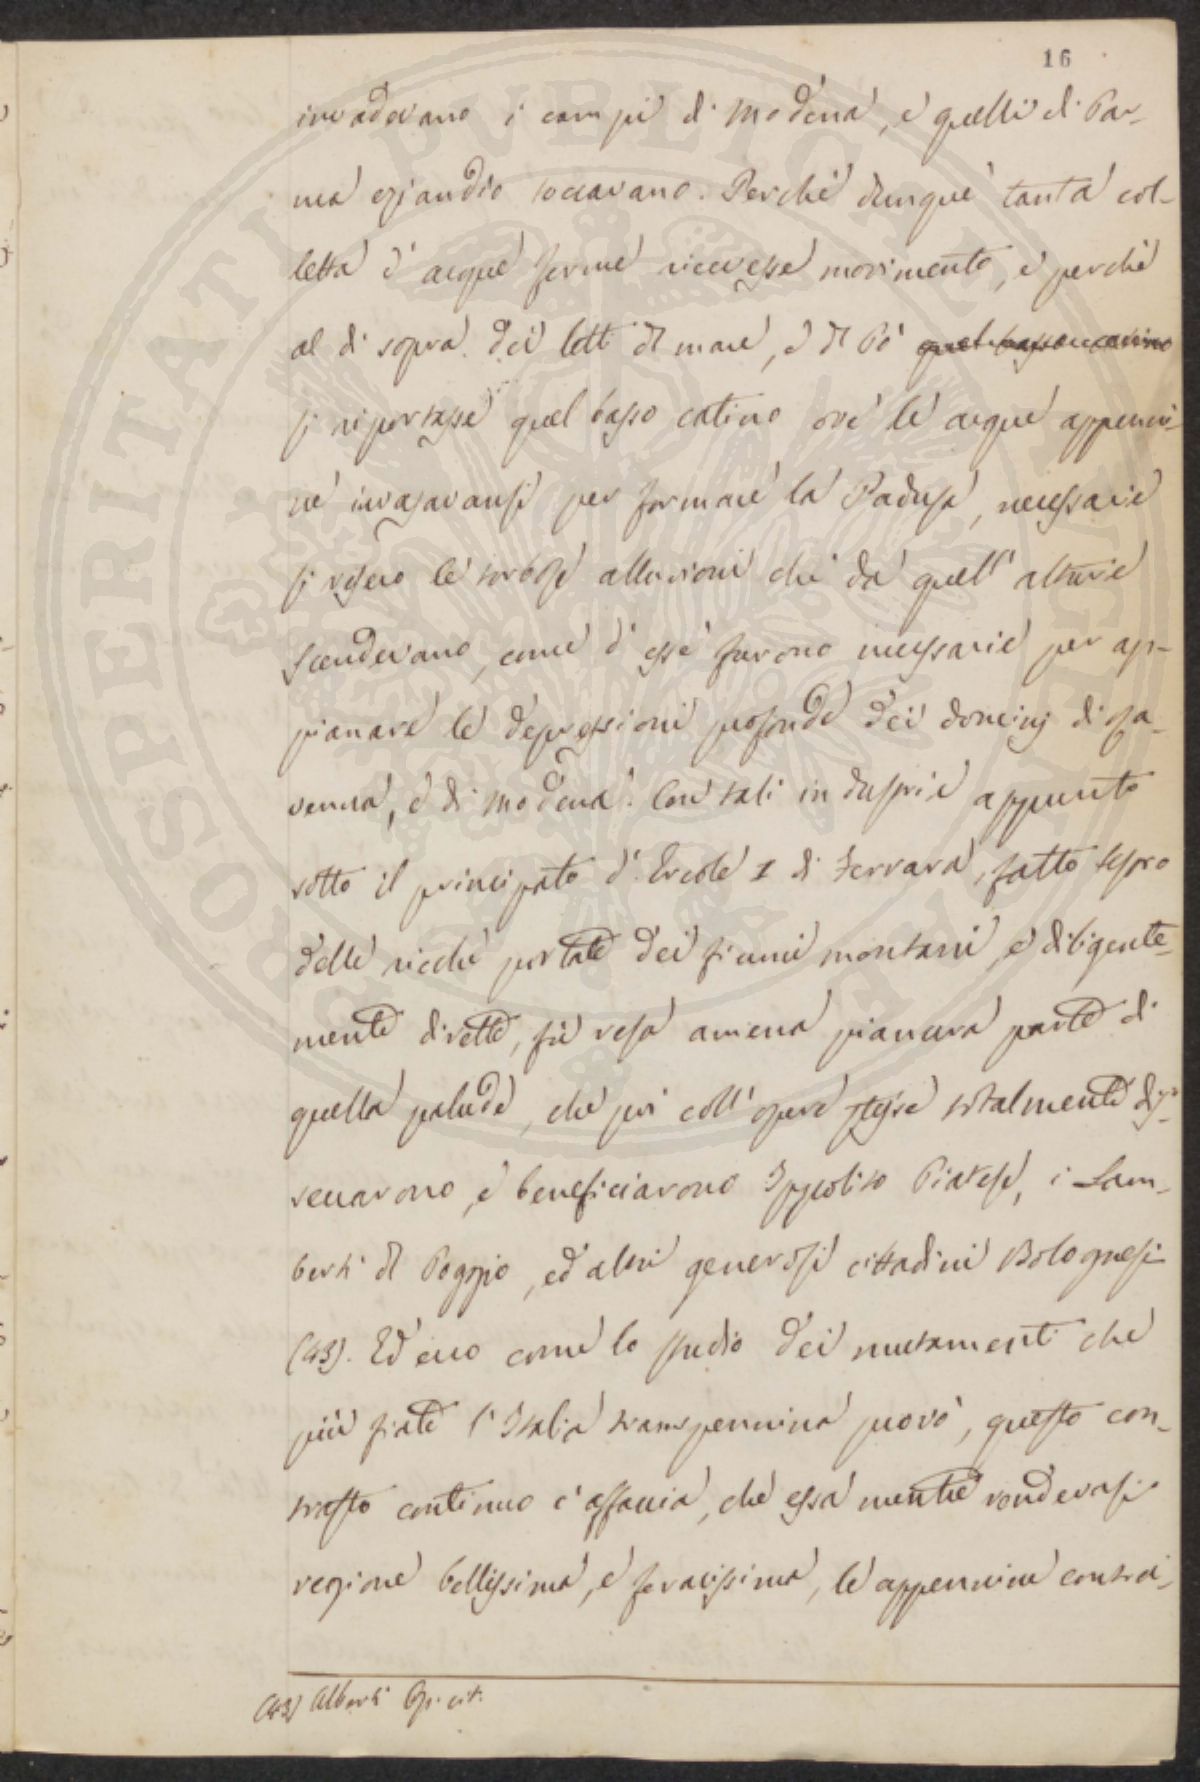 16
invadevano i campi di Modena, e quelli di Par-
ma eziandio toccavano. Perchè dunque tanta col-
letta d'acque ferme ricevesse movimento, e perchè
al di sopra dei letti di mare, e di Pò quel basso catino
si riportasse quel basso catino ove le acque appenni-
ne invasavansi per formare la Padusa, necessarie
si resero le torbose alluvioni che da quell'alture
scendevano, come d'esse furono necessarie per ap-
pianare le depressioni profonde dei dominj di Ra-
venna, e di Modena. Con tali industrie appunto
sotto il principato d'Ercole I di Ferrara, fatto tesoro
delle ricche portate dei fiumi montani, e diligente-
mente dirette, fu resa amena pianura parte di
quella palude, che poi coll'opere stesse totalmente dis-
seccarono, e beneficiarono Ippolito Piatesi, i Lam-
berti di Poggio, ed altri generosi cittadini Bolognesi
(43). Ed ecco come lo studio dei mutamenti che
più fiate l'Italia transpennina provò, questo con-
trasto continuo c'affaccia, che essa mentre rendevasi
regione bellissima, e feracissima, le appennine contra-
(43) Alberti Op. cit.
PROSPERITATI PVBLICAE AVGENDAE